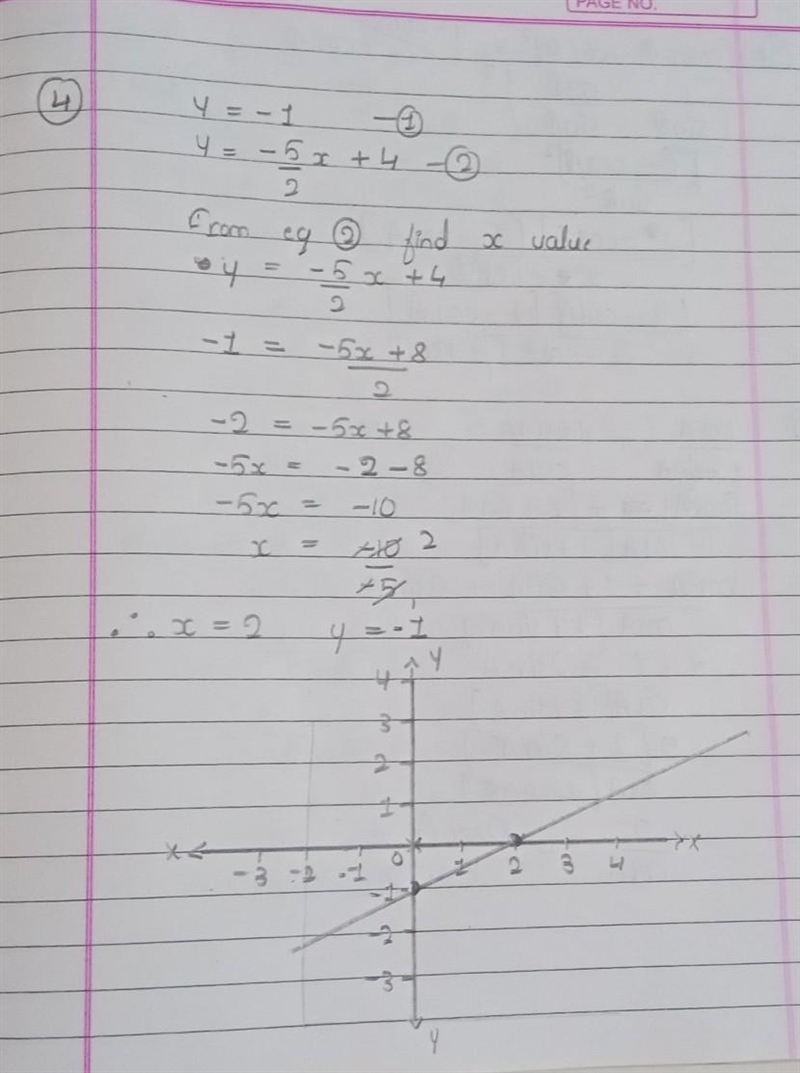 PAGE NO.
4
y = -1 -①
y = -5/2 x + 4 -②
From eq ② find x value
y = -5/2 x + 4
-1 = -5x + 8 / 2
-2 = -5x + 8
-5x = -2 - 8
-5x = -10
x = -10/-5 2 1
∴ x = 2 y = -1
Y
4
3
2
1
X -3 -2 -1 0 1 2 3 4 X
-1
-2
-3
Y